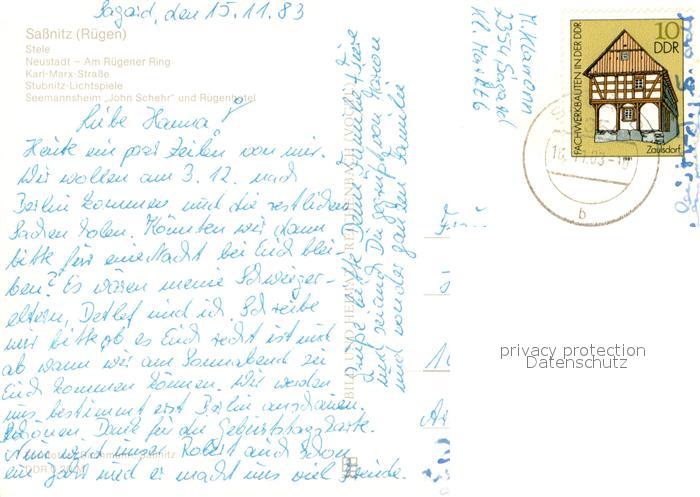 Sagard, den 15.11.83
Saßnitz (Rügen)
Stele
Neustadt – Am Rügener Ring
Karl-Marx-Straße
Stubnitz-Lichtspiele
Seemannsheim „John Schehr“ und Rügenhotel
Liebe Hanna!
Heute ein paar Zeilen von mir.
Wir wollen am 3.12. nach
Berlin kommen und die restlichen
Sachen holen. Könnten wir dann
bitte für eine Nacht bei Euch blei-
ben? Es wären meine Schwieger-
eltern, Detlef und ich. Schreibe
mir bitte ob es Euch recht ist und
ab wann wir am Sonnabend zu
Euch kommen können. Wir werden
uns bestimmt erst Berlin anschauen.
Schönen Dank für die Geburtstagskarte.
Nun wird unser Robert auch schon
ein Jahr und er macht uns viel Freude.
Grüße bitte Deine Familie + Tiere
und seiand Du gegrüßt von Marion
und von der ganzen Familie
BILD UND HEIMAT REICHENBACH
2354 Sagard
10
DDR
FACHWERKBAUTEN IN DER DDR
Zaulsdorf
1981
b
privacy protection
Datenschutz